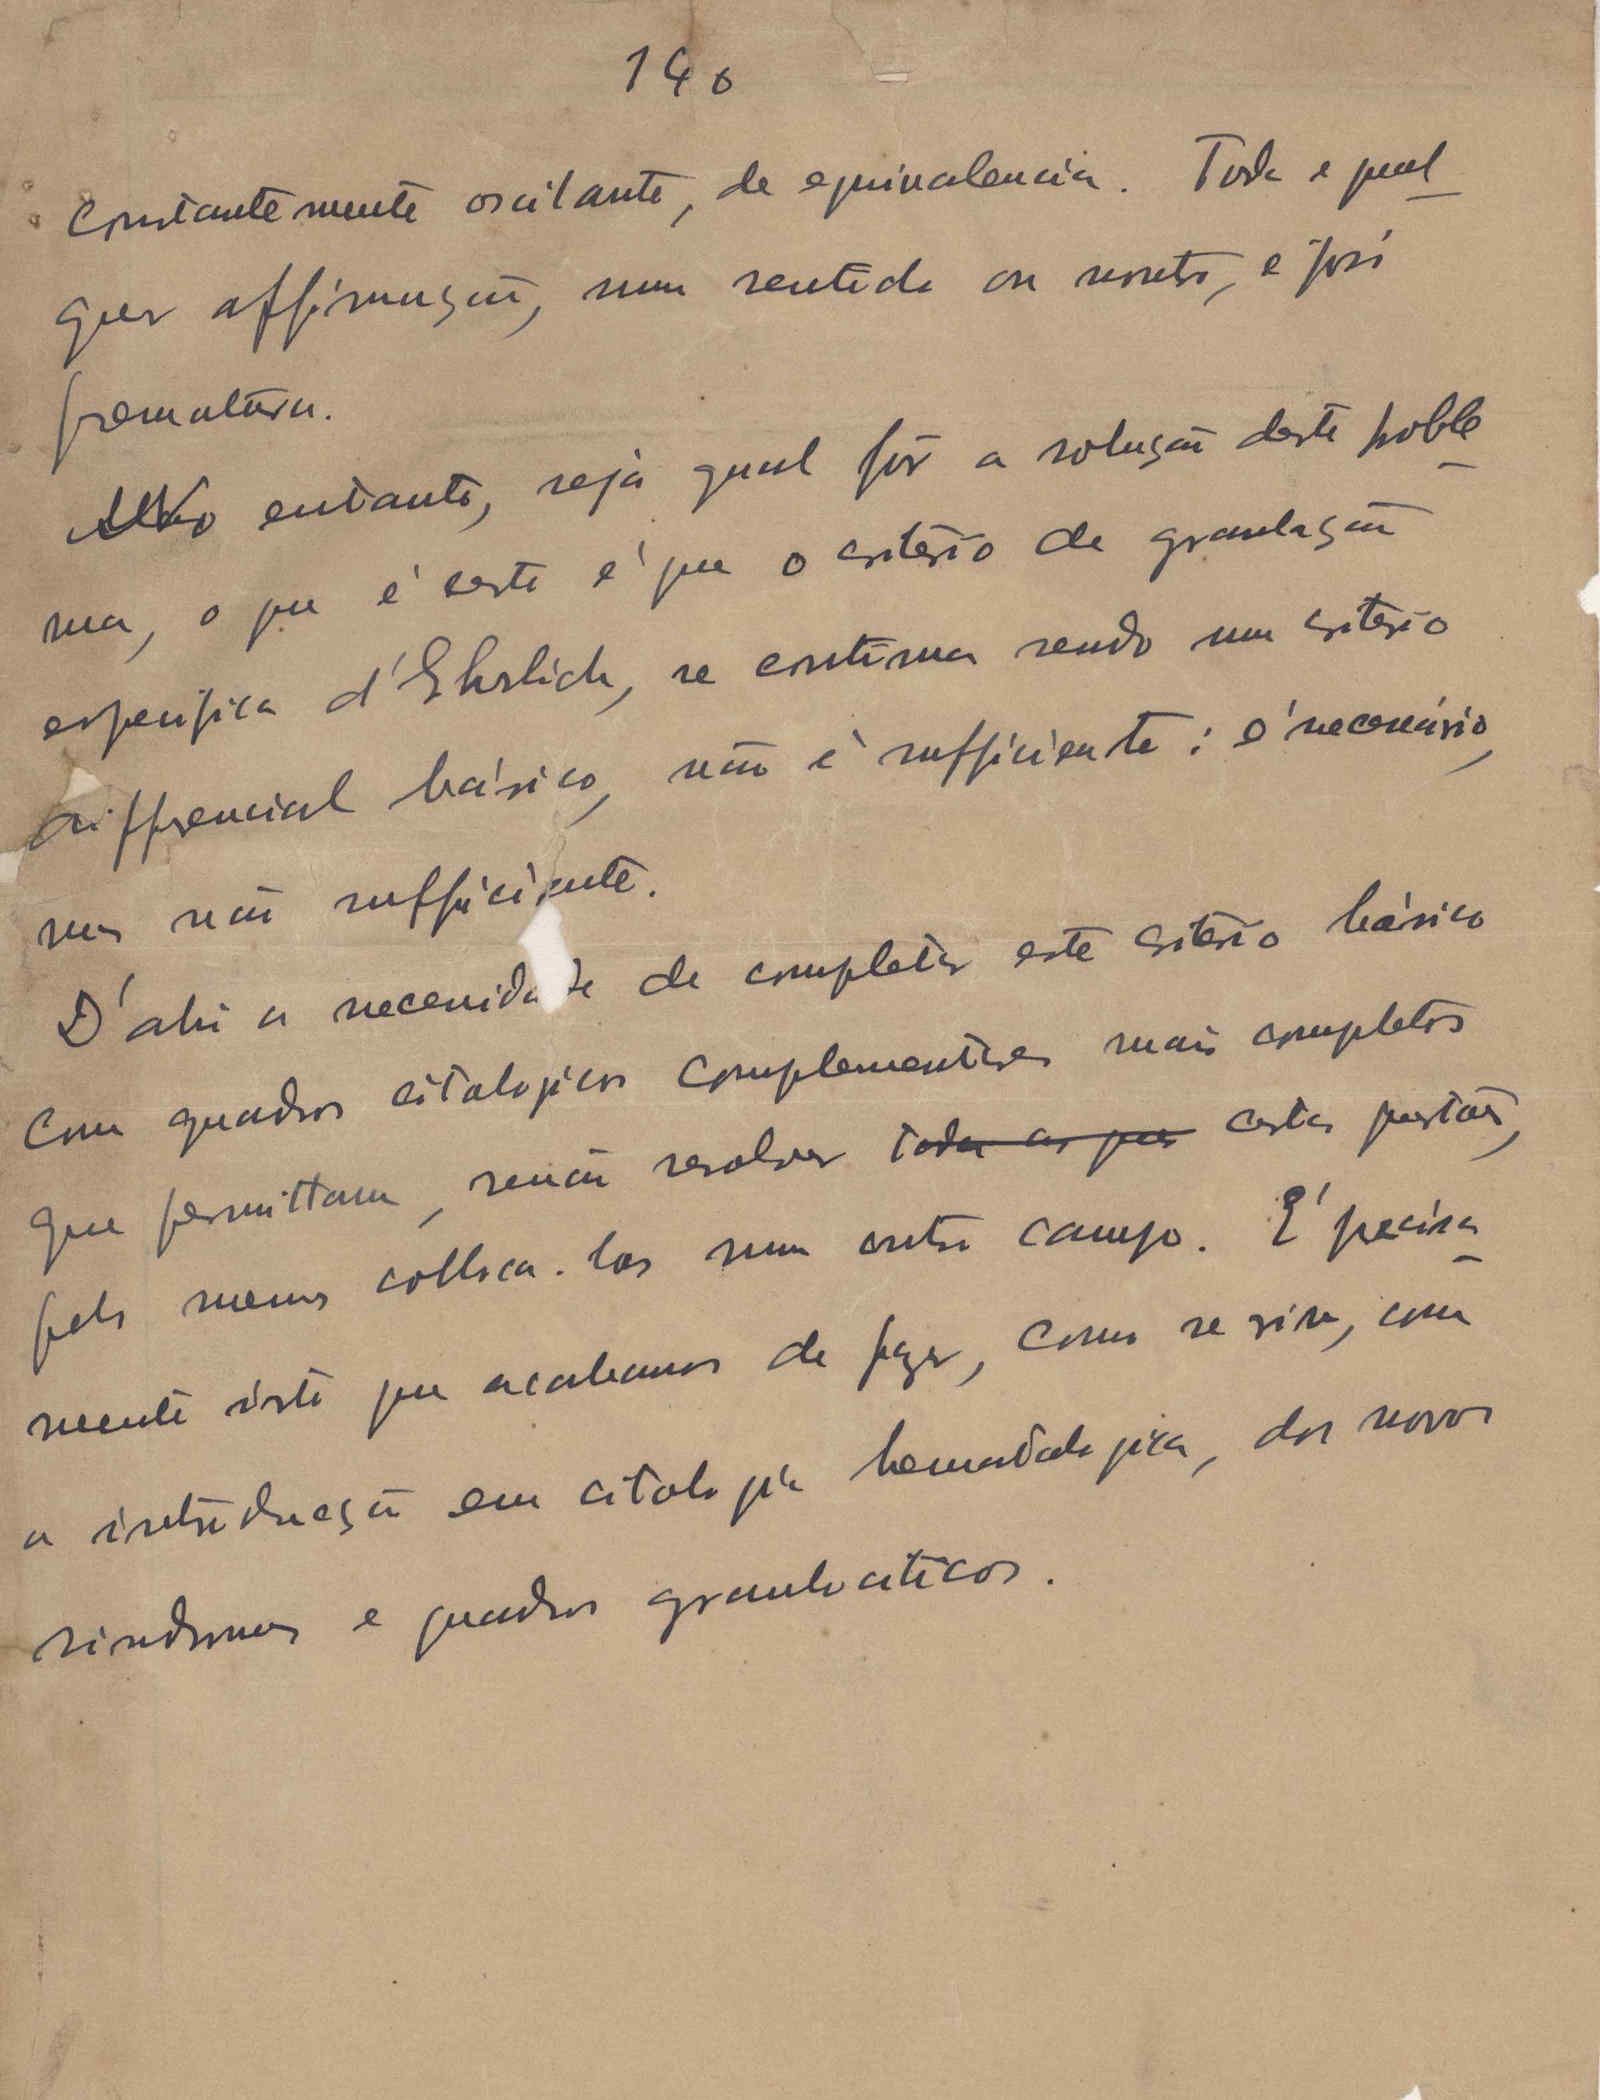 140
constantemente oscilante, de equivalencia. Toda e qual-
quer affirmação, num sentido ou noutro, é pois
prematura.
No entanto, seja qual fôr a solução deste proble-
ma, o que é certo é que o criterio de granulação
especifica d'Ehrlich, se continua sendo um criterio
differencial básico, não é sufficiente: é necessário,
mas não sufficiente.
D'ahi a necessidade de completar este criterio básico
com quadros citologicos complementares mais completos
que permittam, senão resolver todas as que certas questões,
pelo menos colloca-las num outro campo. É precisa-
mente isto que acabamos de fazer, como se viu, com
a introducção em citologia hematologica, dos novos
sindromas e quadros granulociticos.